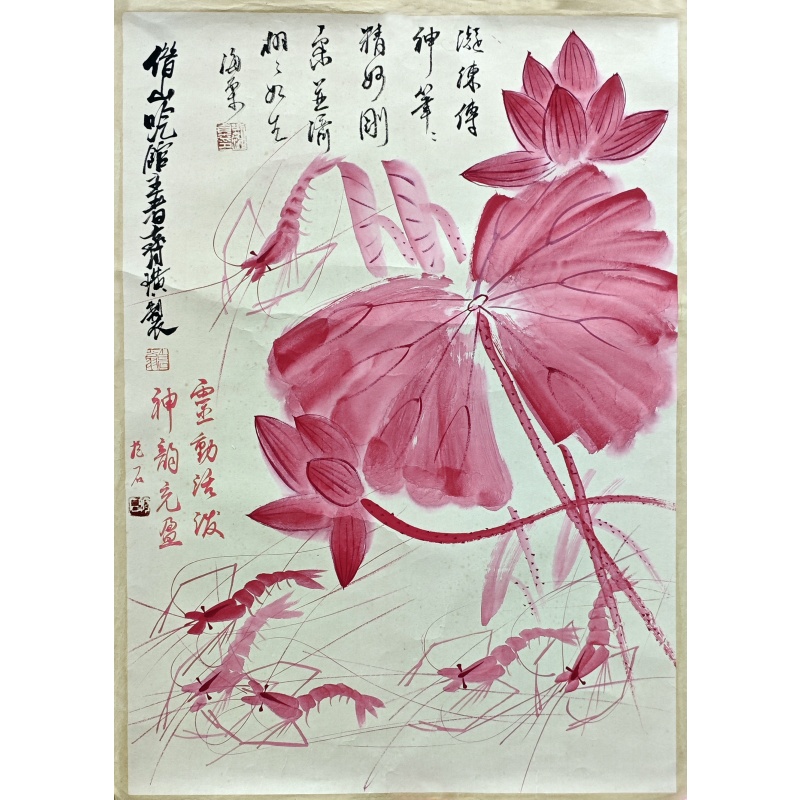 凝練傳
神筆〻
精妙剛
柔並濟
栩〻如生
海粟
借山吟館主者齊璜製
靈動活潑
神韻充盈
抱石